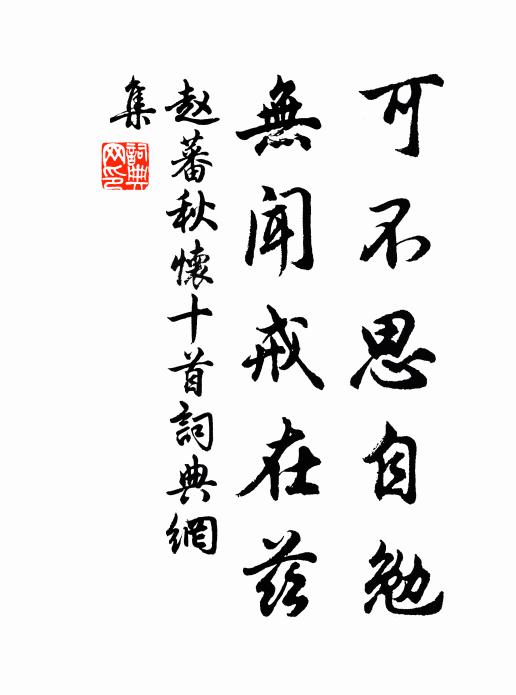 可不思自勉
無闻戒在兹
赵蕃秋懷十首詞典網
集
詞典網印